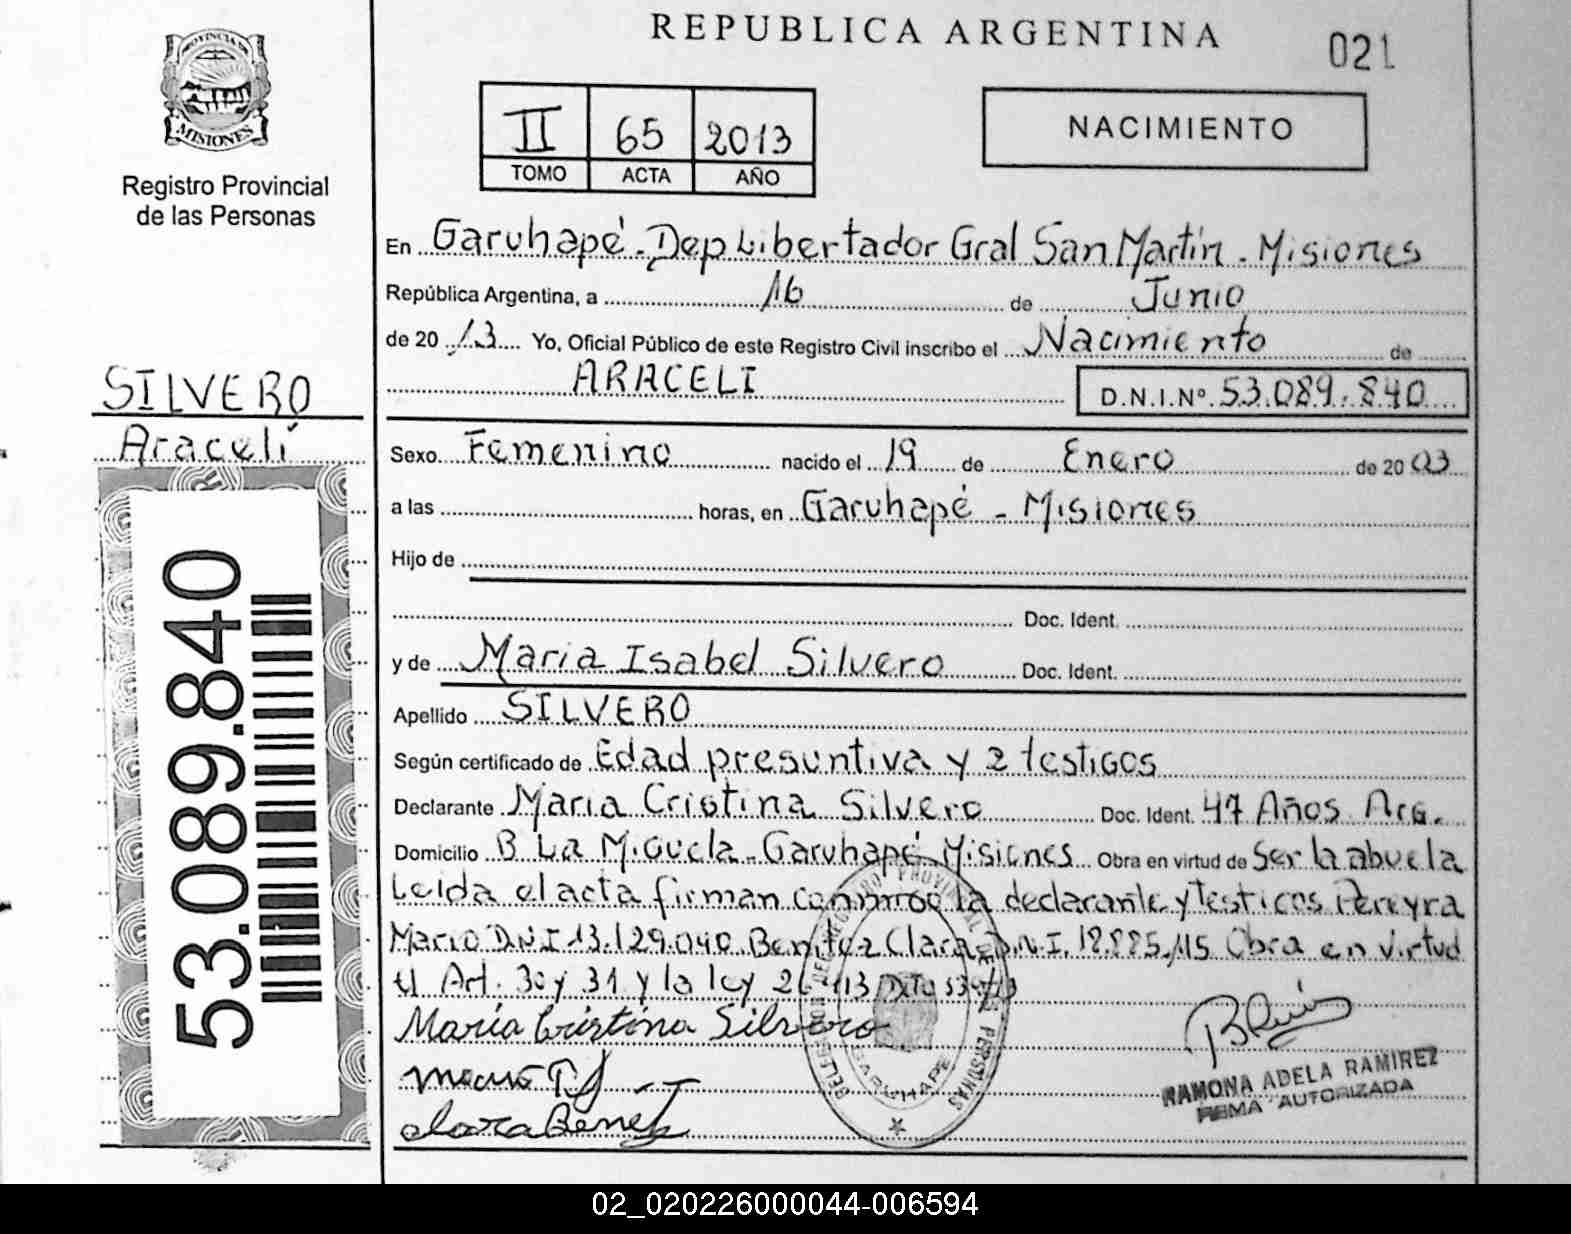 REPUBLICA ARGENTINA
021
PROVINCIA DE
MISIONES
Registro Provincial
de las Personas
II 65 2013
TOMO ACTA AÑO
NACIMIENTO
En Garuhapé. Dep Libertador Gral San Martín. Misiones
República Argentina, a 16 de Junio
de 20 13 Yo, Oficial Público de este Registro Civil inscribo el Nacimiento de
ARACELI D.N.I.Nº. 53.089.840
SILVERO
Aracelí
Sexo Femenino nacido el 19 de Enero de 20 03
a las horas, en Garuhapé - Misiones
Hijo de
Doc. Ident.
y de Maria Isabel Silvero Doc. Ident.
Apellido SILVERO
Según certificado de Edad presuntiva y 2 testigos
Declarante Maria Cristina Silvero Doc. Ident. 47 Años Arg.
Domicilio B La Miguela - Garuhapé Misiones Obra en virtud de Ser la abuela
Leida el acta firman conmigo la declarante y testigos Pereyra
Mario D.N.I 13.129.040 Benitez Clara D.N.I. Obra en virtud
Art. 30 y 31 y la ley
María Cristina Silvero
Clara Benitez
RAMONA ADELA RAMIREZ
FIRMA AUTORIZADA
53.089.840
GARUHAPE
02_020226000044-006594